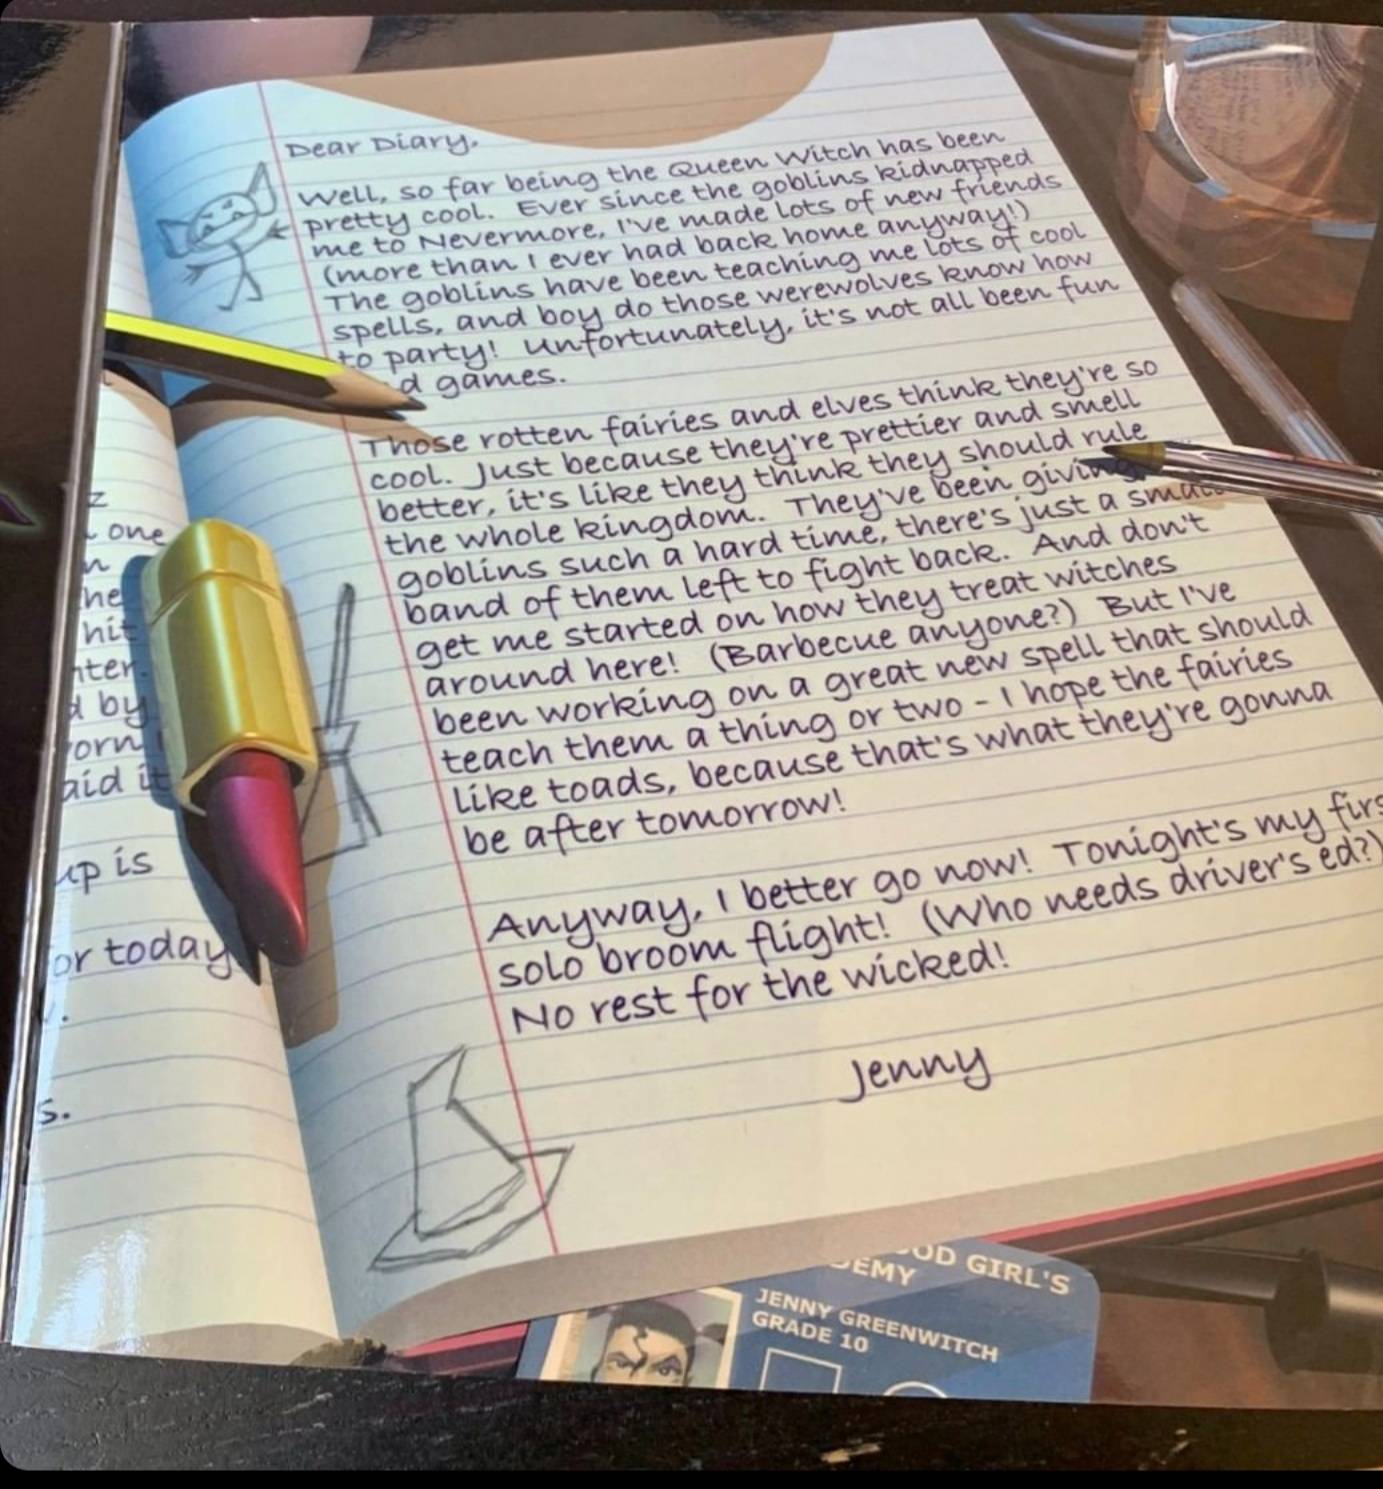 Dear Diary,
Well, so far being the Queen Witch has been
pretty cool. Ever since the goblins kidnapped
me to Nevermore, I've made lots of new friends
(more than I ever had back home anyway!)
The goblins have been teaching me lots of cool
spells, and boy do those werewolves know how
to party! Unfortunately, it's not all been fun
d games.
Those rotten fairies and elves think they're so
cool. Just because they're prettier and smell
better, it's like they think they should rule
the whole kingdom. They've been giving
goblins such a hard time, there's just a small
band of them left to fight back. And don't
get me started on how they treat witches
around here! (Barbecue anyone?) But I've
been working on a great new spell that should
teach them a thing or two - I hope the fairies
like toads, because that's what they're gonna
be after tomorrow!
Anyway, I better go now! Tonight's my firs
solo broom flight! (Who needs driver's ed?)
No rest for the wicked!
Jenny
z
one
n
he
hit
ter
d by
orn
aid it
up is
or today
s.
OD GIRL'S
DEMY
JENNY GREENWITCH
GRADE 10